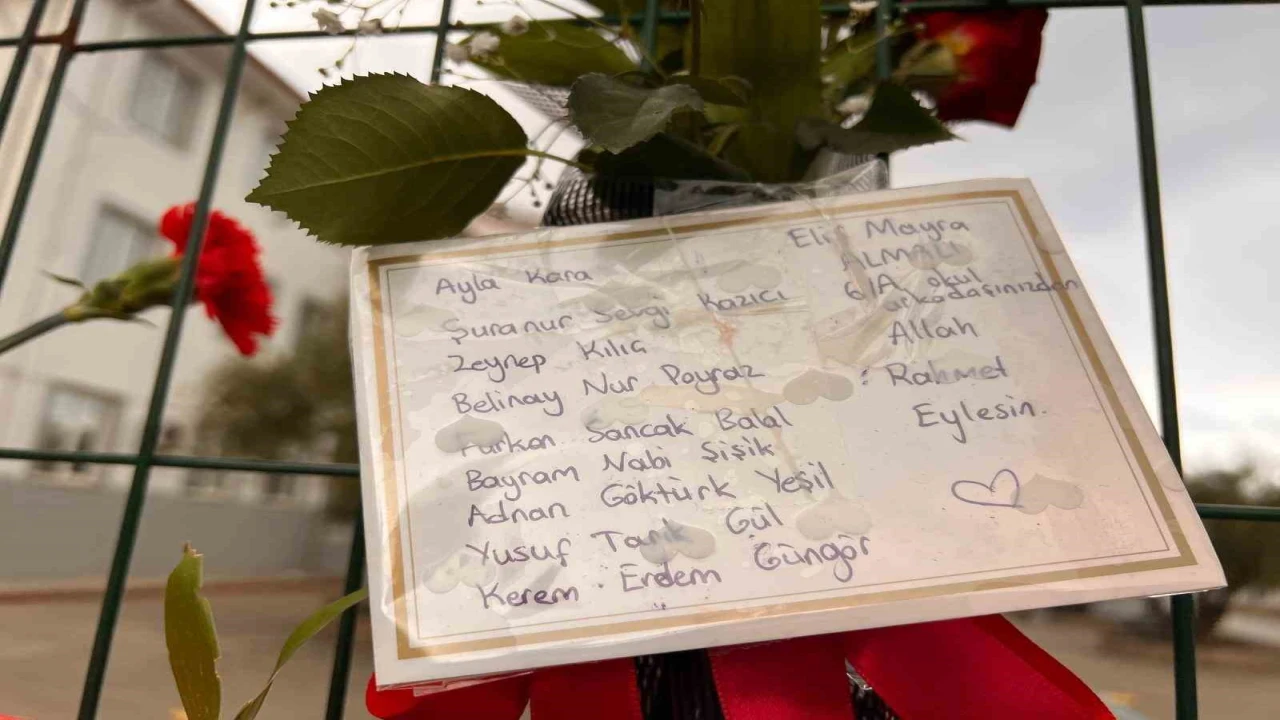 Ayla Kara
Şuranur Sevgi Kazıcı
Zeynep Kılıç
Belinay Nur Poyraz
Furkan Sancak Balal
Bayram Nabi Şişik
Adnan Göktürk Yeşil
Yusuf Tarık Gül
Kerem Erdem Güngör
Elif Mayra
ALMALI
6/A okul
arkadaşınızdan
Allah
Rahmet
Eylesin.